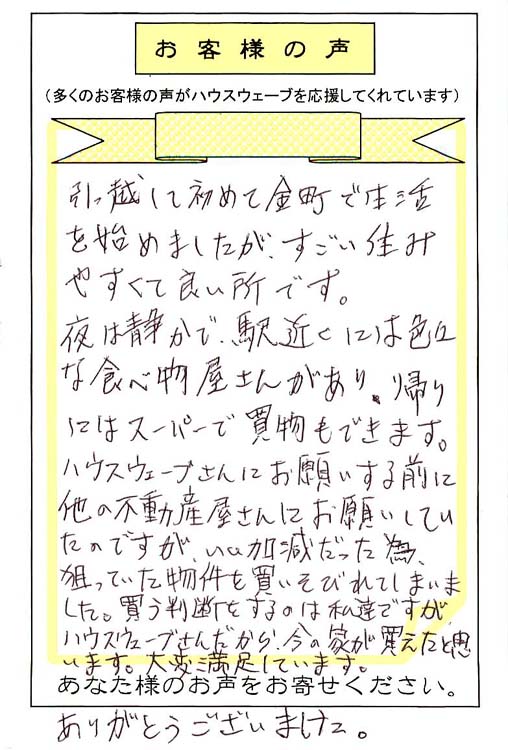 お客様の声
（多くのお客様の声がハウスウェーブを応援してくれています）
引っ越して初めて金町で生活
を始めましたが、すごい住み
やすくて良い所です。
夜は静かで、駅近くには色々
な食べ物屋さんがあり、帰り
にはスーパーで買物もできます。
ハウスウェーブさんにお願いする前に
他の不動産屋さんにお願いしてい
たのですが、いい加減だった為、
狙っていた物件を買いそびれてしまいま
した。買う判断をするのは私達ですが
ハウスウェーブさんだから、今の家が買えたと思
います。大変満足しています。
あなた様のお声をお寄せください。
ありがとうございました。